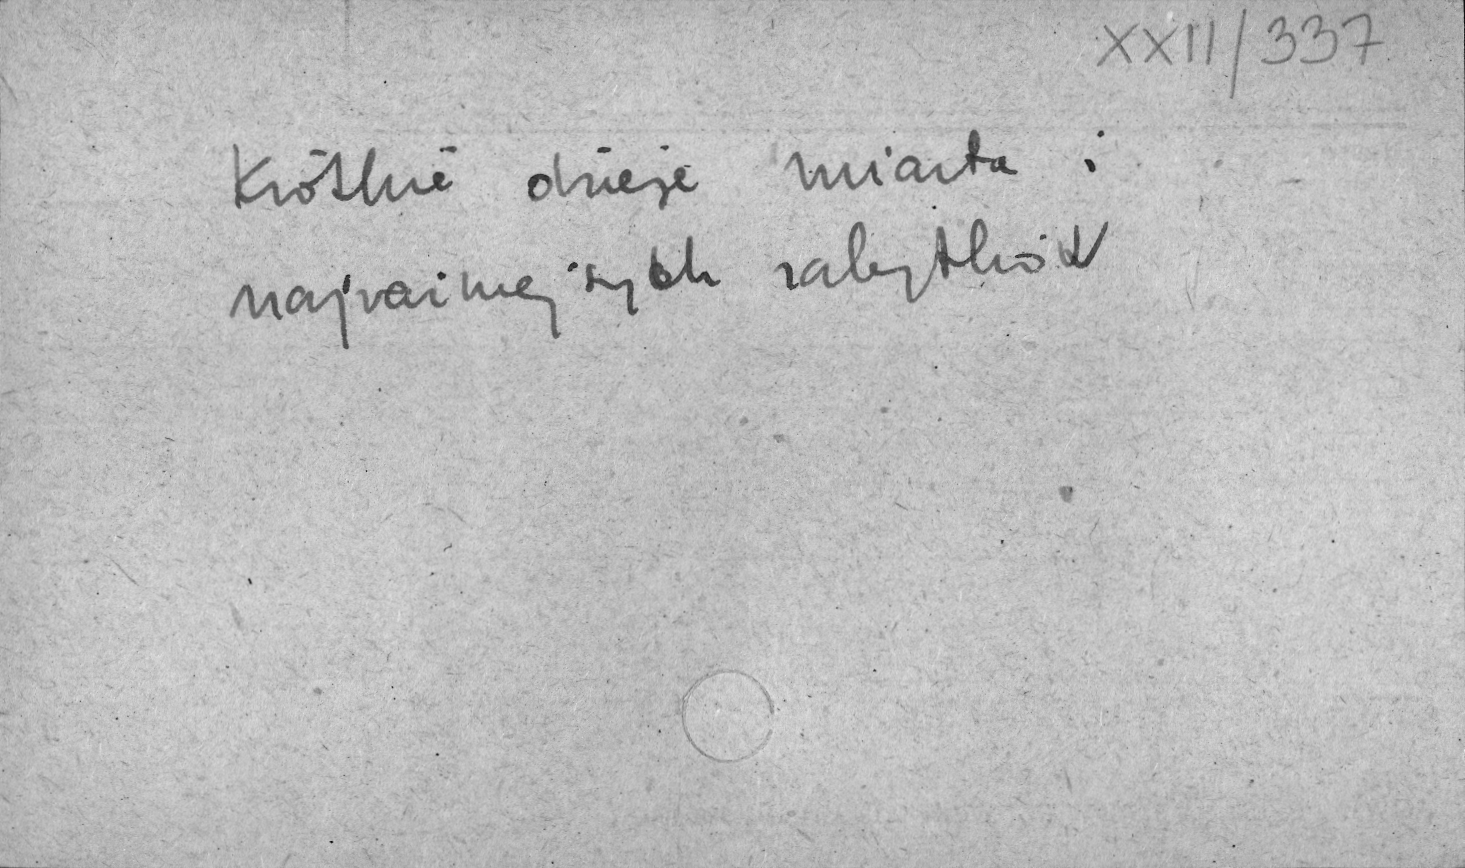 XXII/337
Krótkie dzieje miasta i
najważniejszych zabytków